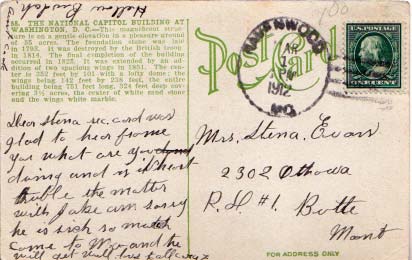 Hellow Beulah
55. THE NATIONAL CAPITOL BUILDING AT
WASHINGTON, D. C.—This magnificent struc-
ture is on a gentle elevation in a pleasure ground
of 55 acres. The foundation stone was laid
in 1793. It was destroyed by the British troops
in 1814. The final completion of the building
occurred in 1825. It was extended by an addi-
tion of two spacious wings in 1851. The cen-
ter is 352 feet by 161 with a lofty dome; the
wings being 142 feet by 238 feet, the entire
building being 751 feet long, 324 feet deep cov-
ering 3½ acres, the center of white sand stone
and the wings white marble.
Post Card
RAVENWOOD
PM
1912
MO.
ONE CENT
Dear Stena rec. card was
glad to hear from
you what are you
doing and is it heart
truble the matter
with Jake am sorry
he is sick so much
come to Mo. and he
will get well
Mrs. Stena. Evans
2302 Ottowa
R. H #1. Butte
Mont
FOR ADDRESS ONLY